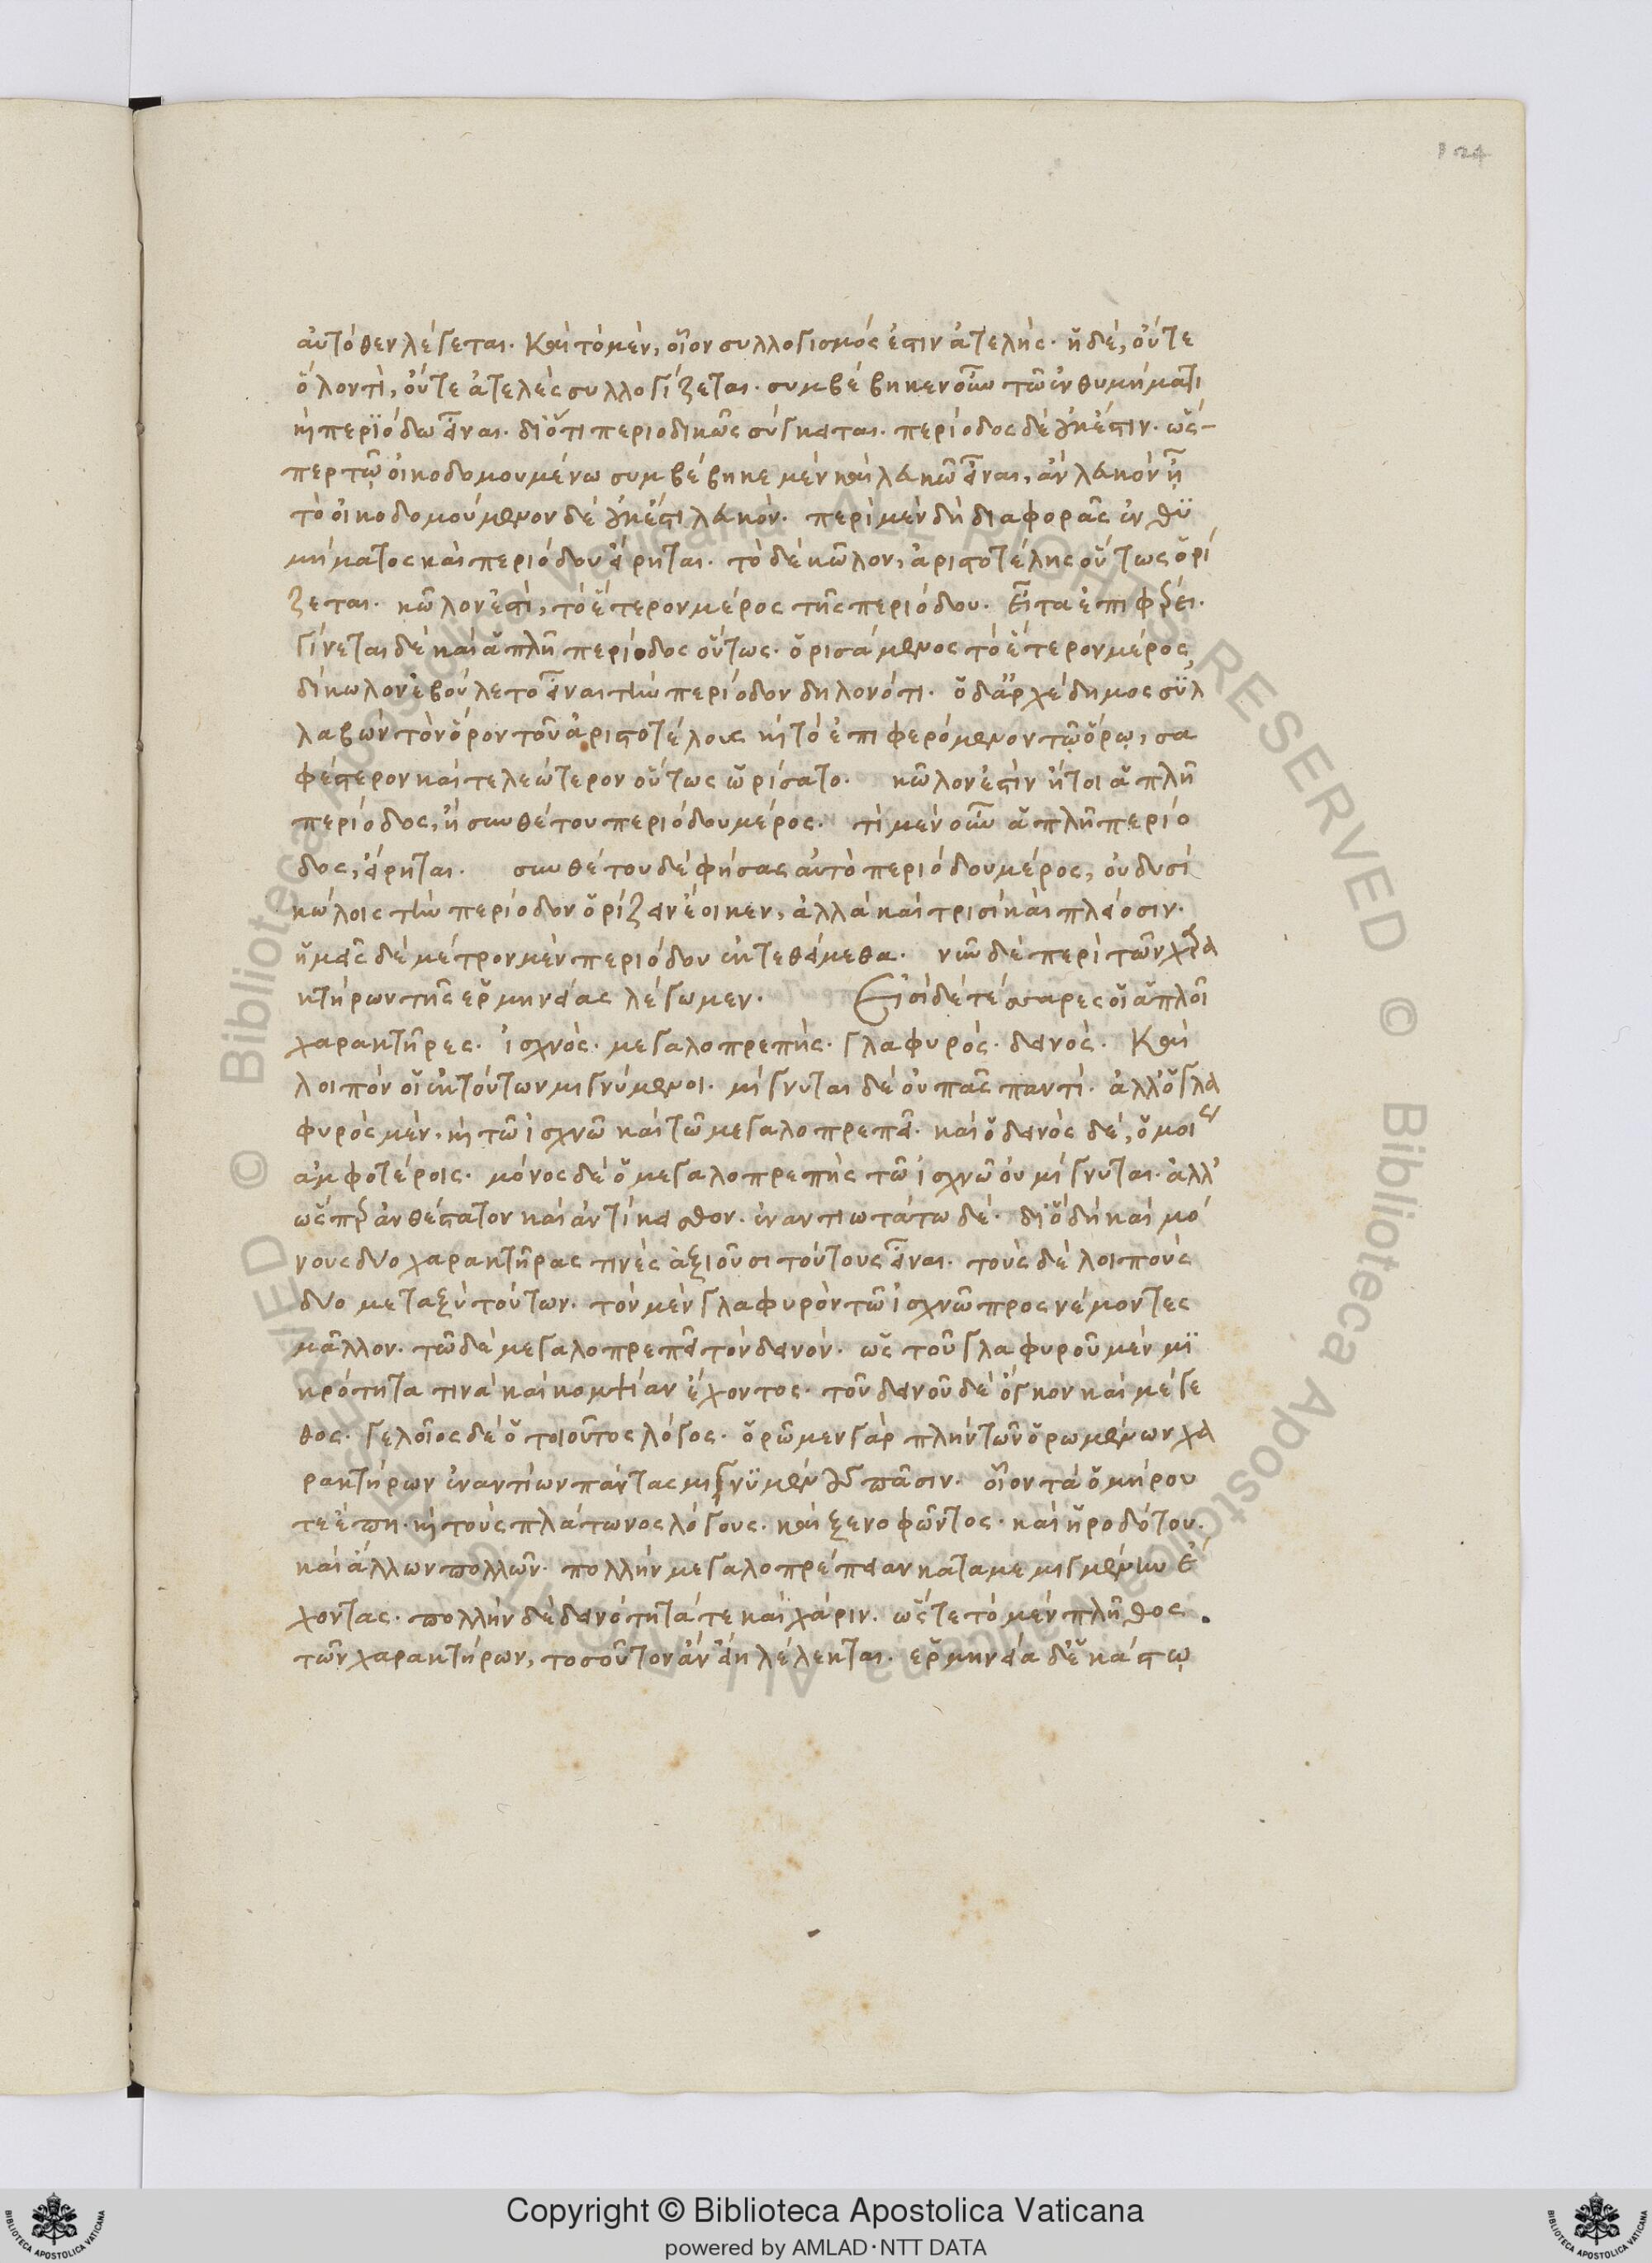 124
αὐτόθεν λέγεται. Καὶ τὸ μὲν, οἷον συλλογισμός ἐστιν ἀτελής. ἡ δέ, οὔτε
ὅλον τὶ, οὔτε ἀτελὲς συλλογίζεται. συμβέβηκεν οὖν τῶ ἐνθυμήματι
κὴ περϊόδω εἶναι. διότι περιοδικῶς σύγκειται. περίοδος δὲ οὐκ ἔστιν. ὥς-
περ τῶ οἰκοδομουμένω συμβέβηκε μὲν καὶ λευκῶ εἶναι, ἂν λευκὸν ᾖ
τὸ οἰκοδομούμενον δὲ οὐκ ἔστι λευκόν. περὶ μὲν δὴ διαφορᾶς ἐνθϋ
μήματος καὶ περιόδου εἴρηται. τὸ δὲ κῶλον, ἀριστοτέλης οὕτως ὁρί
ζεται. κῶλον ἐστὶ, τὸ ἕτερον μέρος τῆς περιόδου. Εἶτα ἐπιφέρει.
γίνεται δὲ καὶ ἁπλῆ περίοδος οὕτως. ὁρισάμενος τὸ ἕτερον μέρος,
δίκωλον ἐβούλετο εἶναι τὴν περίοδον δηλονότι. ὁ δ' ἀρχέδημος σϋλ
λαβὼν τὸν ὅρον τοῦ ἀριστοτέλους κὴ τὸ ἐπιφερόμενον τῷ ὅρῳ, σα
φέστερον καὶ τελεώτερον οὕτως ὡρίσατο. κῶλον ἐστὶν ἤτοι ἁπλῆ
περίοδος, ἢ συνθέτου περιόδου μέρος. τί μὲν οὖν ἁπλῆ περίο
δος, εἴρηται. συνθέτου δὲ φήσας αὐτὸ περιόδου μέρος, οὐ δυσὶ
κώλοις τὴν περίοδον ὁρίζειν ἔοικεν, ἀλλὰ καὶ τρισὶ καὶ πλείοσιν.
ἡμεῖς δὲ μέτρον μὲν περιόδου ἐκτεθείμεθα. νῦν δὲ περὶ τῶν χαρα
κτήρων τῆς ἑρμηνείας λέγωμεν. Εἰσὶ δὲ τέσσαρες οἱ ἁπλοῖ
χαρακτῆρες. ἰσχνὸς. μεγαλοπρεπής. γλαφυρὸς. δεινὸς. Καὶ
λοιπὸν οἱ ἐκ τούτων μιγνύμενοι. μίγνυται δὲ οὐ πᾶς παντὶ. ἀλλ' ὁ γλα
φυρὸς μὲν. κὴ τῶ ἰσχνῶ καὶ τῶ μεγαλοπρεπεῖ. καὶ ὁ δεινὸς δὲ, ὁμοίως
ἀμφοτέροις. μόνος δὲ ὁ μεγαλοπρεπὴς τῶ ἰσχνῶ οὐ μίγνυται. ἀλλ'
ὥσπερ ἀνθέστατον καὶ ἀντίκεισθον. ἐναντιωτάτω δέ. διὸ δὴ καὶ μό
νους δύο χαρακτῆρας τινὲς ἀξιοῦσι τούτους εἶναι. τοὺς δὲ λοιποὺς
δύο μεταξὺ τούτων. τὸν μὲν γλαφυρὸν τῶ ἰσχνῶ προςνέμοντες
μᾶλλον. τῶ δὲ μεγαλοπρεπεῖ τὸν δεινόν. ὡς τοῦ γλαφυροῦ μὲν μϊ
κρότητα τινὰ καὶ κομψείαν ἔχοντος. τοῦ δεινοῦ δὲ ὄγκον καὶ μέγε
θος. γελοῖος δὲ ὁ τοιοῦτος λόγος. ὁρῶμεν γὰρ πλὴν τῶν ὁρωμένων χα
ρακτήρων ἐναντίων πάντας μιγνϋμένους πᾶσιν. οἷον τὰ ὁμήρου
τε ἔπη. κὴ τοὺς πλάτωνος λόγους. καὶ ξενοφῶντος. καὶ ἡροδότου.
καὶ ἄλλων πολλῶν. πολλὴν μεγαλοπρέπειαν καταμεμιγμένην ἔ
χοντας. πολλὴν δὲ δεινότητά τε καὶ χάριν. ὥστε τὸ μὲν πλῆθος
τῶν χαρακτήρων, τοσοῦτον ἂν εἴη λέλεκται. ἑρμηνεία δ' ἑκάστῳ
Copyright © Biblioteca Apostolica Vaticana
powered by AMLAD·NTT DATA